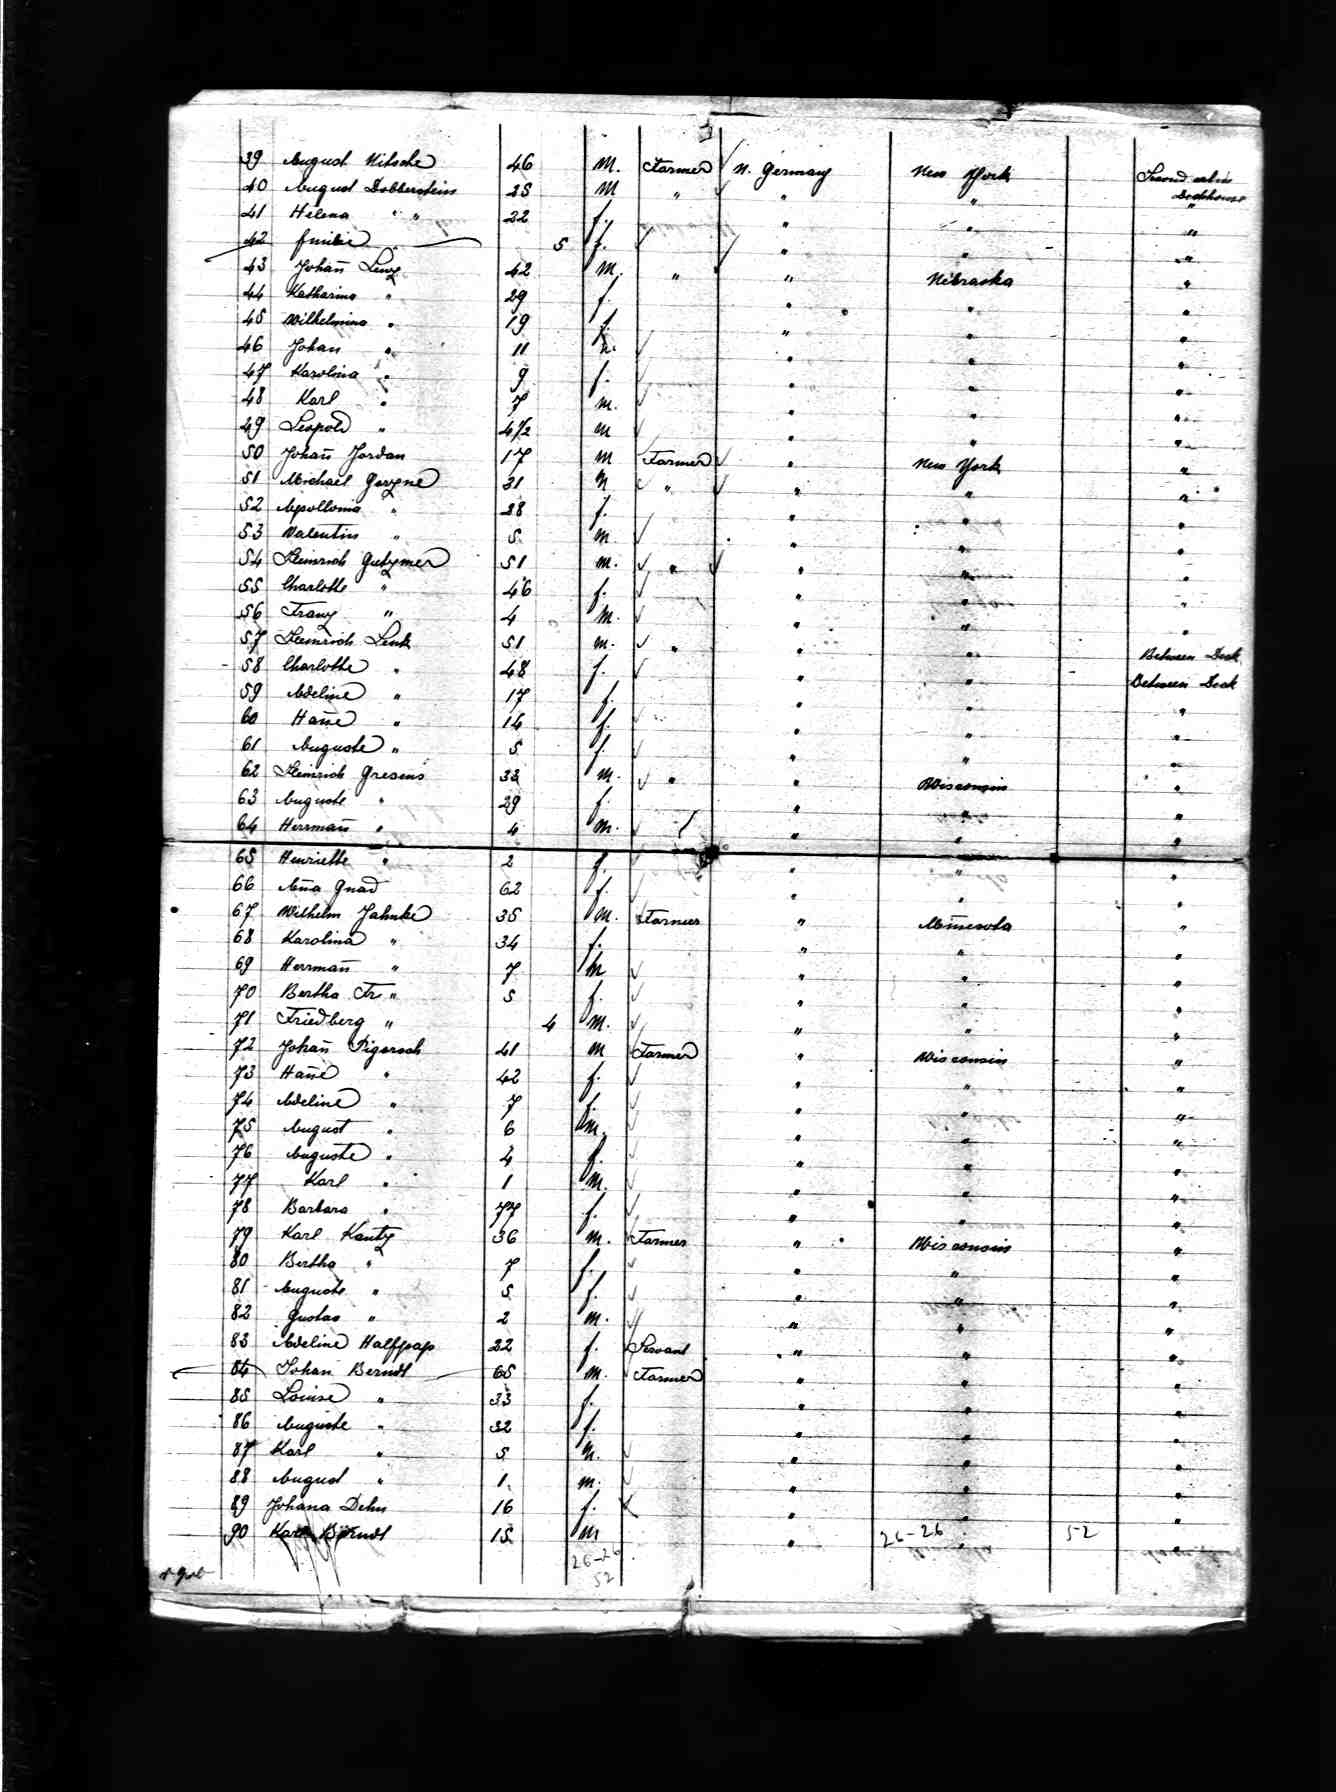 39 August Nitsche 46 M. Farmer N. Germany New York Second cabin
40 August Dobberstein 25 M " " " Deckhouse
41 Helena " " 22 f. " " "
42 Emilie 5 f. " " "
43 Johañ Lenz 42 M. " " Nebraska "
44 Katharina " 29 f. " " "
45 Wilhelmina " 19 f. " " "
46 Johan " 11 m. " " "
47 Karolina " 9 f. " " "
48 Karl " 7 m. " " "
49 Leopold " 4½ m " " "
50 Johañ Jordan 17 M Farmer " New York "
51 Michael 31 M " " " "
52 Apollonia " 28 f. " " "
53 Valentin " 5 m. " " "
54 Heinrich Gutzmer 51 m. " " " "
55 Charlotte " 46 f. " " "
56 Franz " 4 m. " " "
57 Heinrich Link 51 m. " " " Between Deck
58 Charlotte " 48 f. " " Between Deck
59 Adeline " 17 f. " " "
60 Hañe " 14 f. " " "
61 Auguste " 5 f. " " "
62 Heinrich Gresens 33 m. " " Wisconsin "
63 Auguste " 29 f. " " "
64 Herrmañ " 4 m. " " "
65 Henriette " 2 f. " " "
66 Aña Gnad 62 f. " " "
67 Wilhelm Jahnke 35 m. Farmer " Miñesota "
68 Karolina " 34 f. " " "
69 Herrmañ " 7 m " " "
70 Bertha Fr " 5 f. " " "
71 Friedberg " 4 m. " " "
72 Johañ Pigorsch 41 m Farmer " Wisconsin "
73 Hañe " 42 f. " " "
74 Adeline " 7 f. " " "
75 August " 6 m. " " "
76 Auguste " 4 f. " " "
77 Karl " 1 m. " " "
78 Barbara " 77 f. " " "
79 Karl Kantz 36 m. Farmer " Wisconsin "
80 Bertha " 7 f. " " "
81 Auguste " 5 f. " " "
82 Gustav " 2 m. " " "
83 Adeline Halfpap 22 f. Servant " " "
84 Johañ Berndt 65 m. Farmer " " "
85 Louise " 33 f. " " "
86 Auguste " 32 f. " " "
87 Karl " 5 m. " " "
88 August " 1 m. " " "
89 Johana Dehn 16 f. " " "
90 Karl Berndt 15 m " " "
26-26 52
26-26
52